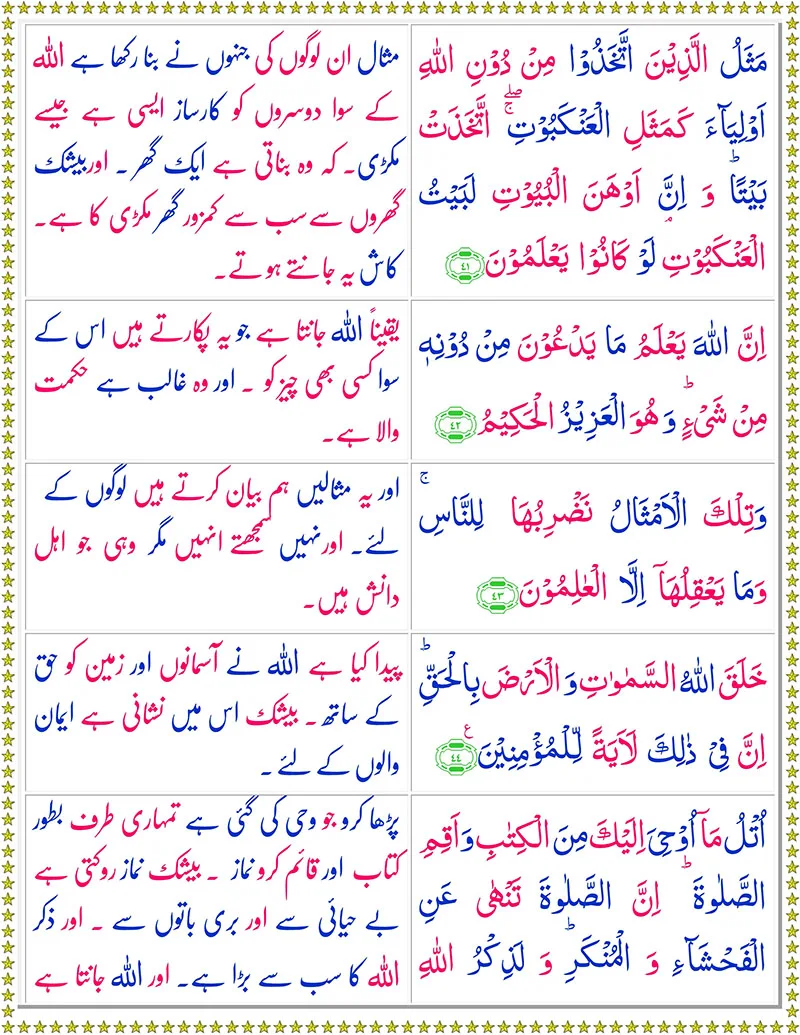 مَثَلُ الَّذِيْنَ اتَّخَذُوْا مِنْ دُوْنِ اللّٰهِ
اَوْلِيَآءَ كَمَثَلِ الْعَنْكَبُوْتِ ۖۚ اِتَّخَذَتْ
بَيْتًا ؕ وَ اِنَّ اَوْهَنَ الْبُيُوْتِ لَبَيْتُ
الْعَنْكَبُوْتِ ۘ لَوْ كَانُوْا يَعْلَمُوْنَ ﴿٤١﴾
مثال ان لوگوں کی جنہوں نے بنا رکھا ہے اللہ
کے سوا دوسروں کو کارساز ایسی ہے جیسے
مکڑی۔ کہ وہ بناتی ہے ایک گھر ۔ اوربیشک
گھروں سے سب سے کمزور گھر مکڑی کا ہے۔
کاش یہ جانتے ہوتے۔
اِنَّ اللّٰهَ يَعْلَمُ مَا يَدْعُوْنَ مِنْ دُوْنِهٖ
مِنْ شَیْءٍ ؕ وَهُوَ الْعَزِيْزُ الْحَكِيْمُ ﴿٤٢﴾
یقیناً اللہ جانتا ہے جو یہ پکارتے ہیں اس کے
سوا کسی بھی چیز کو ۔ اور وہ غالب ہے حکمت
والا ہے۔
وَتِلْكَ الْاَمْثَالُ نَضْرِبُهَا لِلنَّاسِ ۚ
وَمَا يَعْقِلُهَاۤ اِلَّا الْعٰلِمُوْنَ ﴿٤٣﴾
اور یہ مثالیں ہم بیان کرتے ہیں لوگوں کے
لئے۔ اورنہیں سمجھتے انہیں مگر وہی جو اہل
دانش ہیں۔
خَلَقَ اللّٰهُ السَّمٰوٰتِ وَ الْاَرْضَ بِالْحَقِّ ؕ
اِنَّ فِیْ ذٰلِكَ لَاٰيَةً لِّلْمُؤْمِنِيْنَ ﴿٤٤﴾ ع
پیدا کیا ہے اللہ نے آسمانوں اور زمین کو حق
کے ساتھ۔ بیشک اس میں نشانی ہے ایمان
والوں کے لئے ۔
اُتْلُ مَاۤ اُوْحِیَ اِلَيْكَ مِنَ الْكِتٰبِ وَاَقِمِ
الصَّلٰوةَ ؕ اِنَّ الصَّلٰوةَ تَنْهٰی عَنِ
الْفَحْشَآءِ وَ الْمُنْكَرِ ؕ وَ لَذِكْرُ اللّٰهِ
پڑھا کرو جو وحی کی گئی ہے تمہاری طرف بطور
کتاب اور قائم کرو نماز ۔ بیشک نماز روکتی ہے
بے حیائی سے اور بری باتوں سے ۔ اور ذکر
اللہ کا سب سے بڑا ہے۔ اور اللہ جانتا ہے